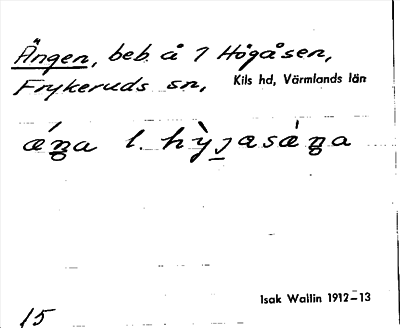 Ängen, beb. å 7 Högåsen,
Frykeruds sn, Kils hd, Värmlands län
ǽŋa l. hỳɟasǽŋa
Isak Wallin 1912-13
15